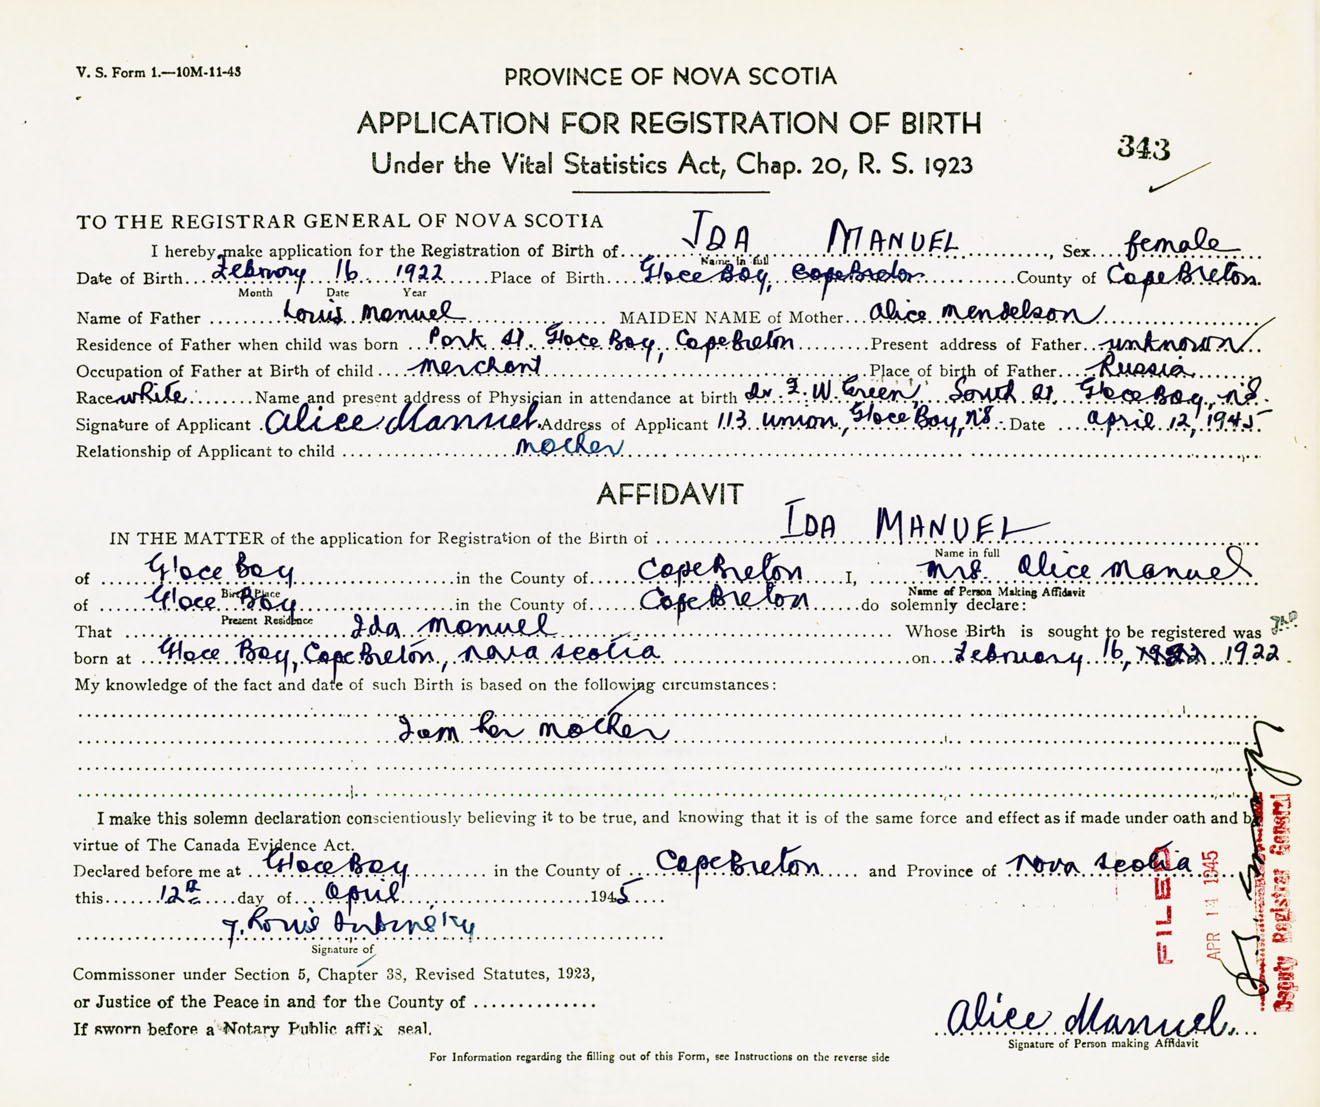 V. S. Form 1.—10M-11-43
PROVINCE OF NOVA SCOTIA
APPLICATION FOR REGISTRATION OF BIRTH
Under the Vital Statistics Act, Chap. 20, R. S. 1923
343
TO THE REGISTRAR GENERAL OF NOVA SCOTIA
I hereby make application for the Registration of Birth of IDA MANUEL, Sex female
Name in full
Date of Birth February 16 1922 Place of Birth Glace Bay, Cape Breton County of Cape Breton
Month Date Year
Name of Father Louis Manuel MAIDEN NAME of Mother Alice Mendelson
Residence of Father when child was born Park St. Glace Bay, Cape Breton Present address of Father unknown
Occupation of Father at Birth of child Merchant Place of birth of Father Russia
Race white Name and present address of Physician in attendance at birth Dr. F. W. Green, South St. Glace Bay, N.S.
Signature of Applicant Alice Manuel Address of Applicant 113 Union, Glace Bay, NS. Date April 12, 1945
Relationship of Applicant to child mother
AFFIDAVIT
IN THE MATTER of the application for Registration of the Birth of IDA MANUEL
Name in full
of Glace Bay in the County of Cape Breton I, Mrs. Alice Manuel
Birth Place Name of Person Making Affidavit
of Glace Bay in the County of Cape Breton do solemnly declare:
Present Residence
That Ida Manuel Whose Birth is sought to be registered was
born at Glace Bay, Cape Breton, Nova Scotia on February 16, 1922
My knowledge of the fact and date of such Birth is based on the following circumstances:
I am her mother
I make this solemn declaration conscientiously believing it to be true, and knowing that it is of the same force and effect as if made under oath and by
virtue of The Canada Evidence Act.
Declared before me at Glace Bay in the County of Cape Breton and Province of Nova Scotia
this 12th day of April 1945
Louis
Signature of
Commissoner under Section 5, Chapter 38, Revised Statutes, 1923,
or Justice of the Peace in and for the County of
If sworn before a Notary Public affix seal.
FILED
APR 14 1945
Deputy Registrar General
Alice Manuel
Signature of Person making Affidavit
For Information regarding the filling out of this Form, see Instructions on the reverse side